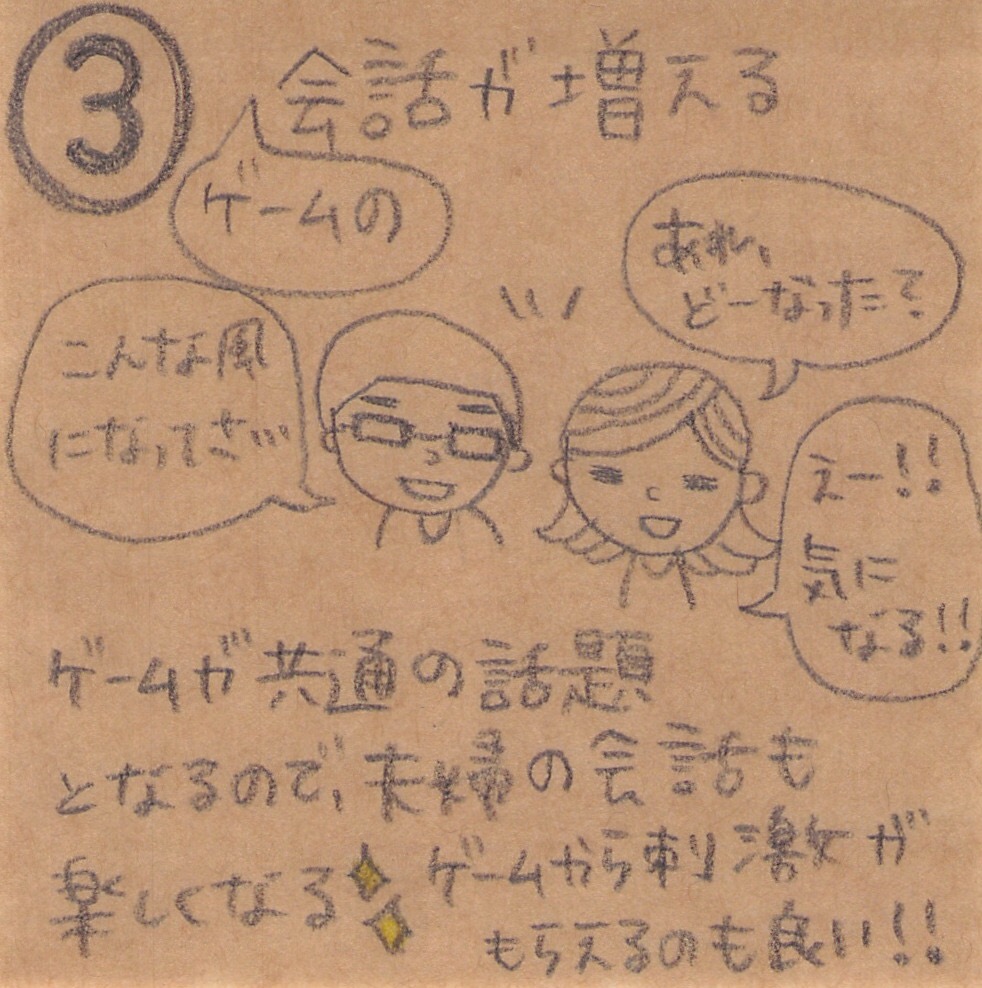 ③ 会話が増える
ゲームの
あれ、
どーなった?
こんな風
になってさ…
えー!!
気に
なる!!
ゲームが共通の話題
となるので、夫婦の会話も
楽しくなる
ゲームから刺激が
もらえるのも良い!!